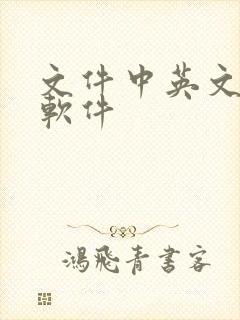 文件中英文
軟件
鴻飛青書客